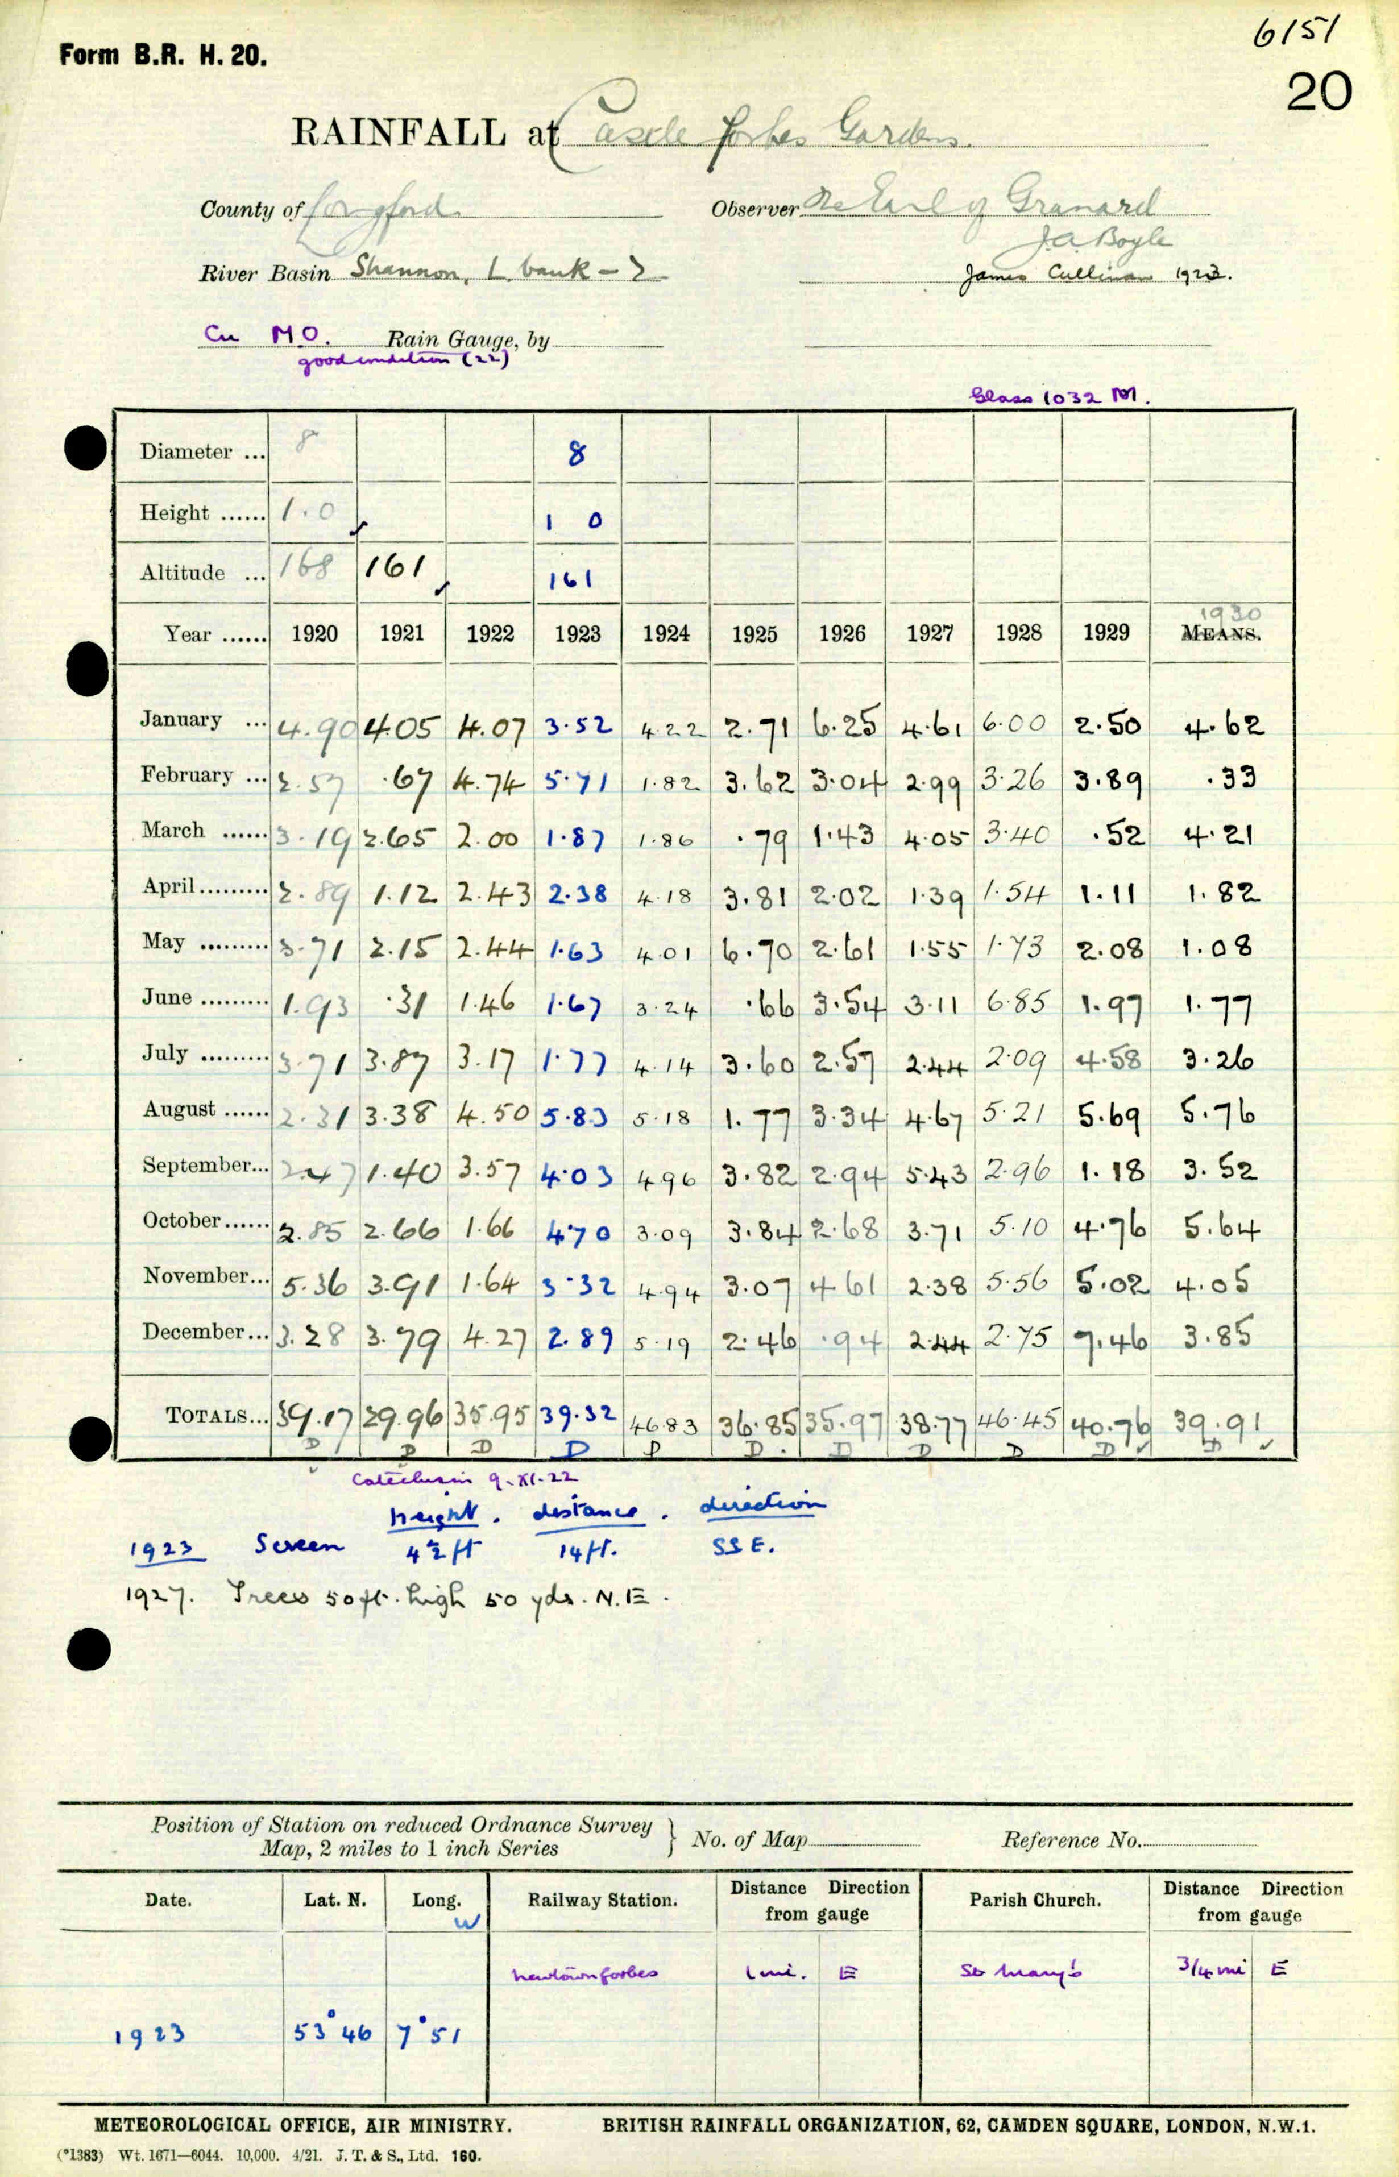 6151
Form B.R. H. 20.
20
RAINFALL at Castle Forbes Gardens.
County of Longford Observer The Earl of Granard
J.A. Boyle
River Basin Shannon, L bank - 7 James Cullinan 1923.
Cu M.O. Rain Gauge, by
good condition (22)
Glass 1032 M.
Diameter ... 8 8
Height ...... 1.0 1 0
Altitude ... 168 161 161
1930
Year ...... 1920 1921 1922 1923 1924 1925 1926 1927 1928 1929 MEANS.
January ... 4.90 4.05 4.07 3.52 4.22 2.71 6.25 4.61 6.00 2.50 4.62
February ... 2.57 .67 4.74 5.71 1.82 3.62 3.04 2.99 3.26 3.89 .33
March ...... 3.19 2.65 2.00 1.87 1.86 .79 1.43 4.05 3.40 .52 4.21
April ......... 2.89 1.12 2.43 2.38 4.18 3.81 2.02 1.39 1.54 1.11 1.82
May ......... 3.71 2.15 2.44 1.63 4.01 6.70 2.61 1.55 1.73 2.08 1.08
June ......... 1.93 .31 1.46 1.67 3.24 .66 3.54 3.11 6.85 1.97 1.77
July ......... 3.71 3.87 3.17 1.77 4.14 3.60 2.57 2.44 2.09 4.58 3.26
August ...... 2.31 3.38 4.50 5.83 5.18 1.77 3.34 4.67 5.21 5.69 5.76
September... 2.47 1.40 3.57 4.03 4.96 3.82 2.94 5.43 2.96 1.18 3.52
October...... 2.85 2.66 1.66 4.70 3.09 3.84 2.68 3.71 5.10 4.76 5.64
November... 5.36 3.91 1.64 3.32 4.94 3.07 4.61 2.38 5.56 5.02 4.05
December... 3.28 3.79 4.27 2.89 5.19 2.46 .94 2.44 2.75 7.46 3.85
TOTALS... 39.17 29.96 35.95 39.32 46.83 36.85 35.97 38.77 46.45 40.76 39.91
D D D D D D D D D D D
Catechism 9.XI.22
height. distance. direction
1923 Screen 4½ ft 14 ft. SSE.
1927. Trees 50 ft. high 50 yds. N.E.
Position of Station on reduced Ordnance Survey
Map, 2 miles to 1 inch Series } No. of Map Reference No.
Date. Lat. N. Long. W Railway Station. Distance Direction from gauge Parish Church. Distance Direction from gauge
Newtownforbes 1 mi. E St Mary's 3/4 mi E
1923 53° 46 7° 51
METEOROLOGICAL OFFICE, AIR MINISTRY. BRITISH RAINFALL ORGANIZATION, 62, CAMDEN SQUARE, LONDON, N.W.1.
(*1383) Wt. 1671—6044. 10,000. 4/21. J. T. & S., Ltd. 160.